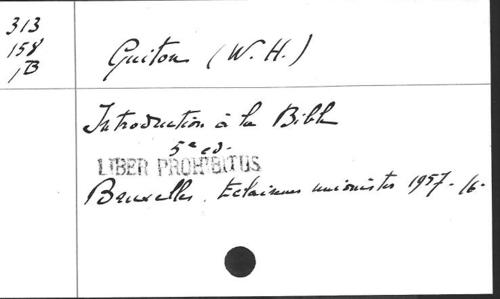 313
158
1B
Guiton (W. H.)
Introduction à la Bible
5e ed.
LIBER PROHIBITUS
Bruxelles, Eclaireurs unionistes 1957. 16.